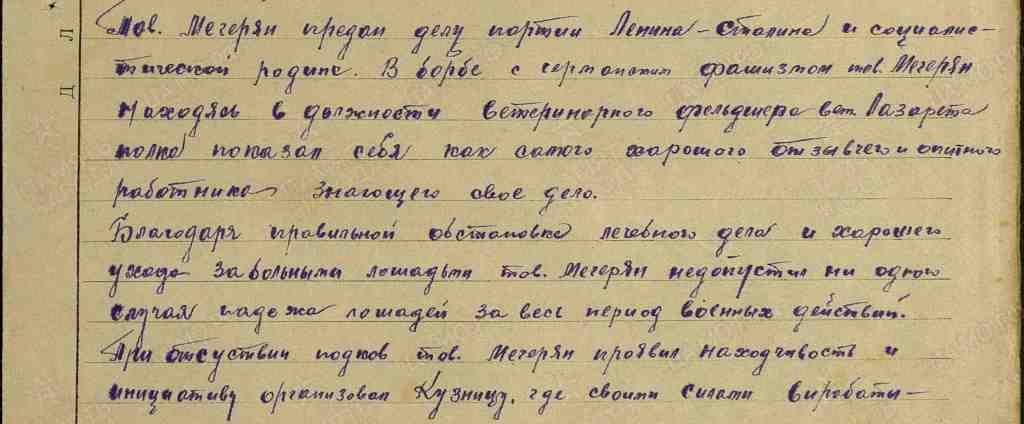 Тов. Мегерян предан делу партии Ленина-Сталина и социалис-
тической родине. В борбе с германским фашизмом тов. Мегерян
находясь в должности ветеринарного фельдшера вет Лазарета
полка показал себя как самого харошого отзывчего и опитного
работника знающего свое дело.
Благодаря правильной обстановке лечебного дела и харошего
ухода за больными лошадьми тов. Мегерян недопустил ни одного
случая падежа лошадей за весь период военных действий.
При отсуствии подков тов. Мегерян проявил находчивость и
инициативу организовал Кузницу, где своими силами виробаты-
Д Л